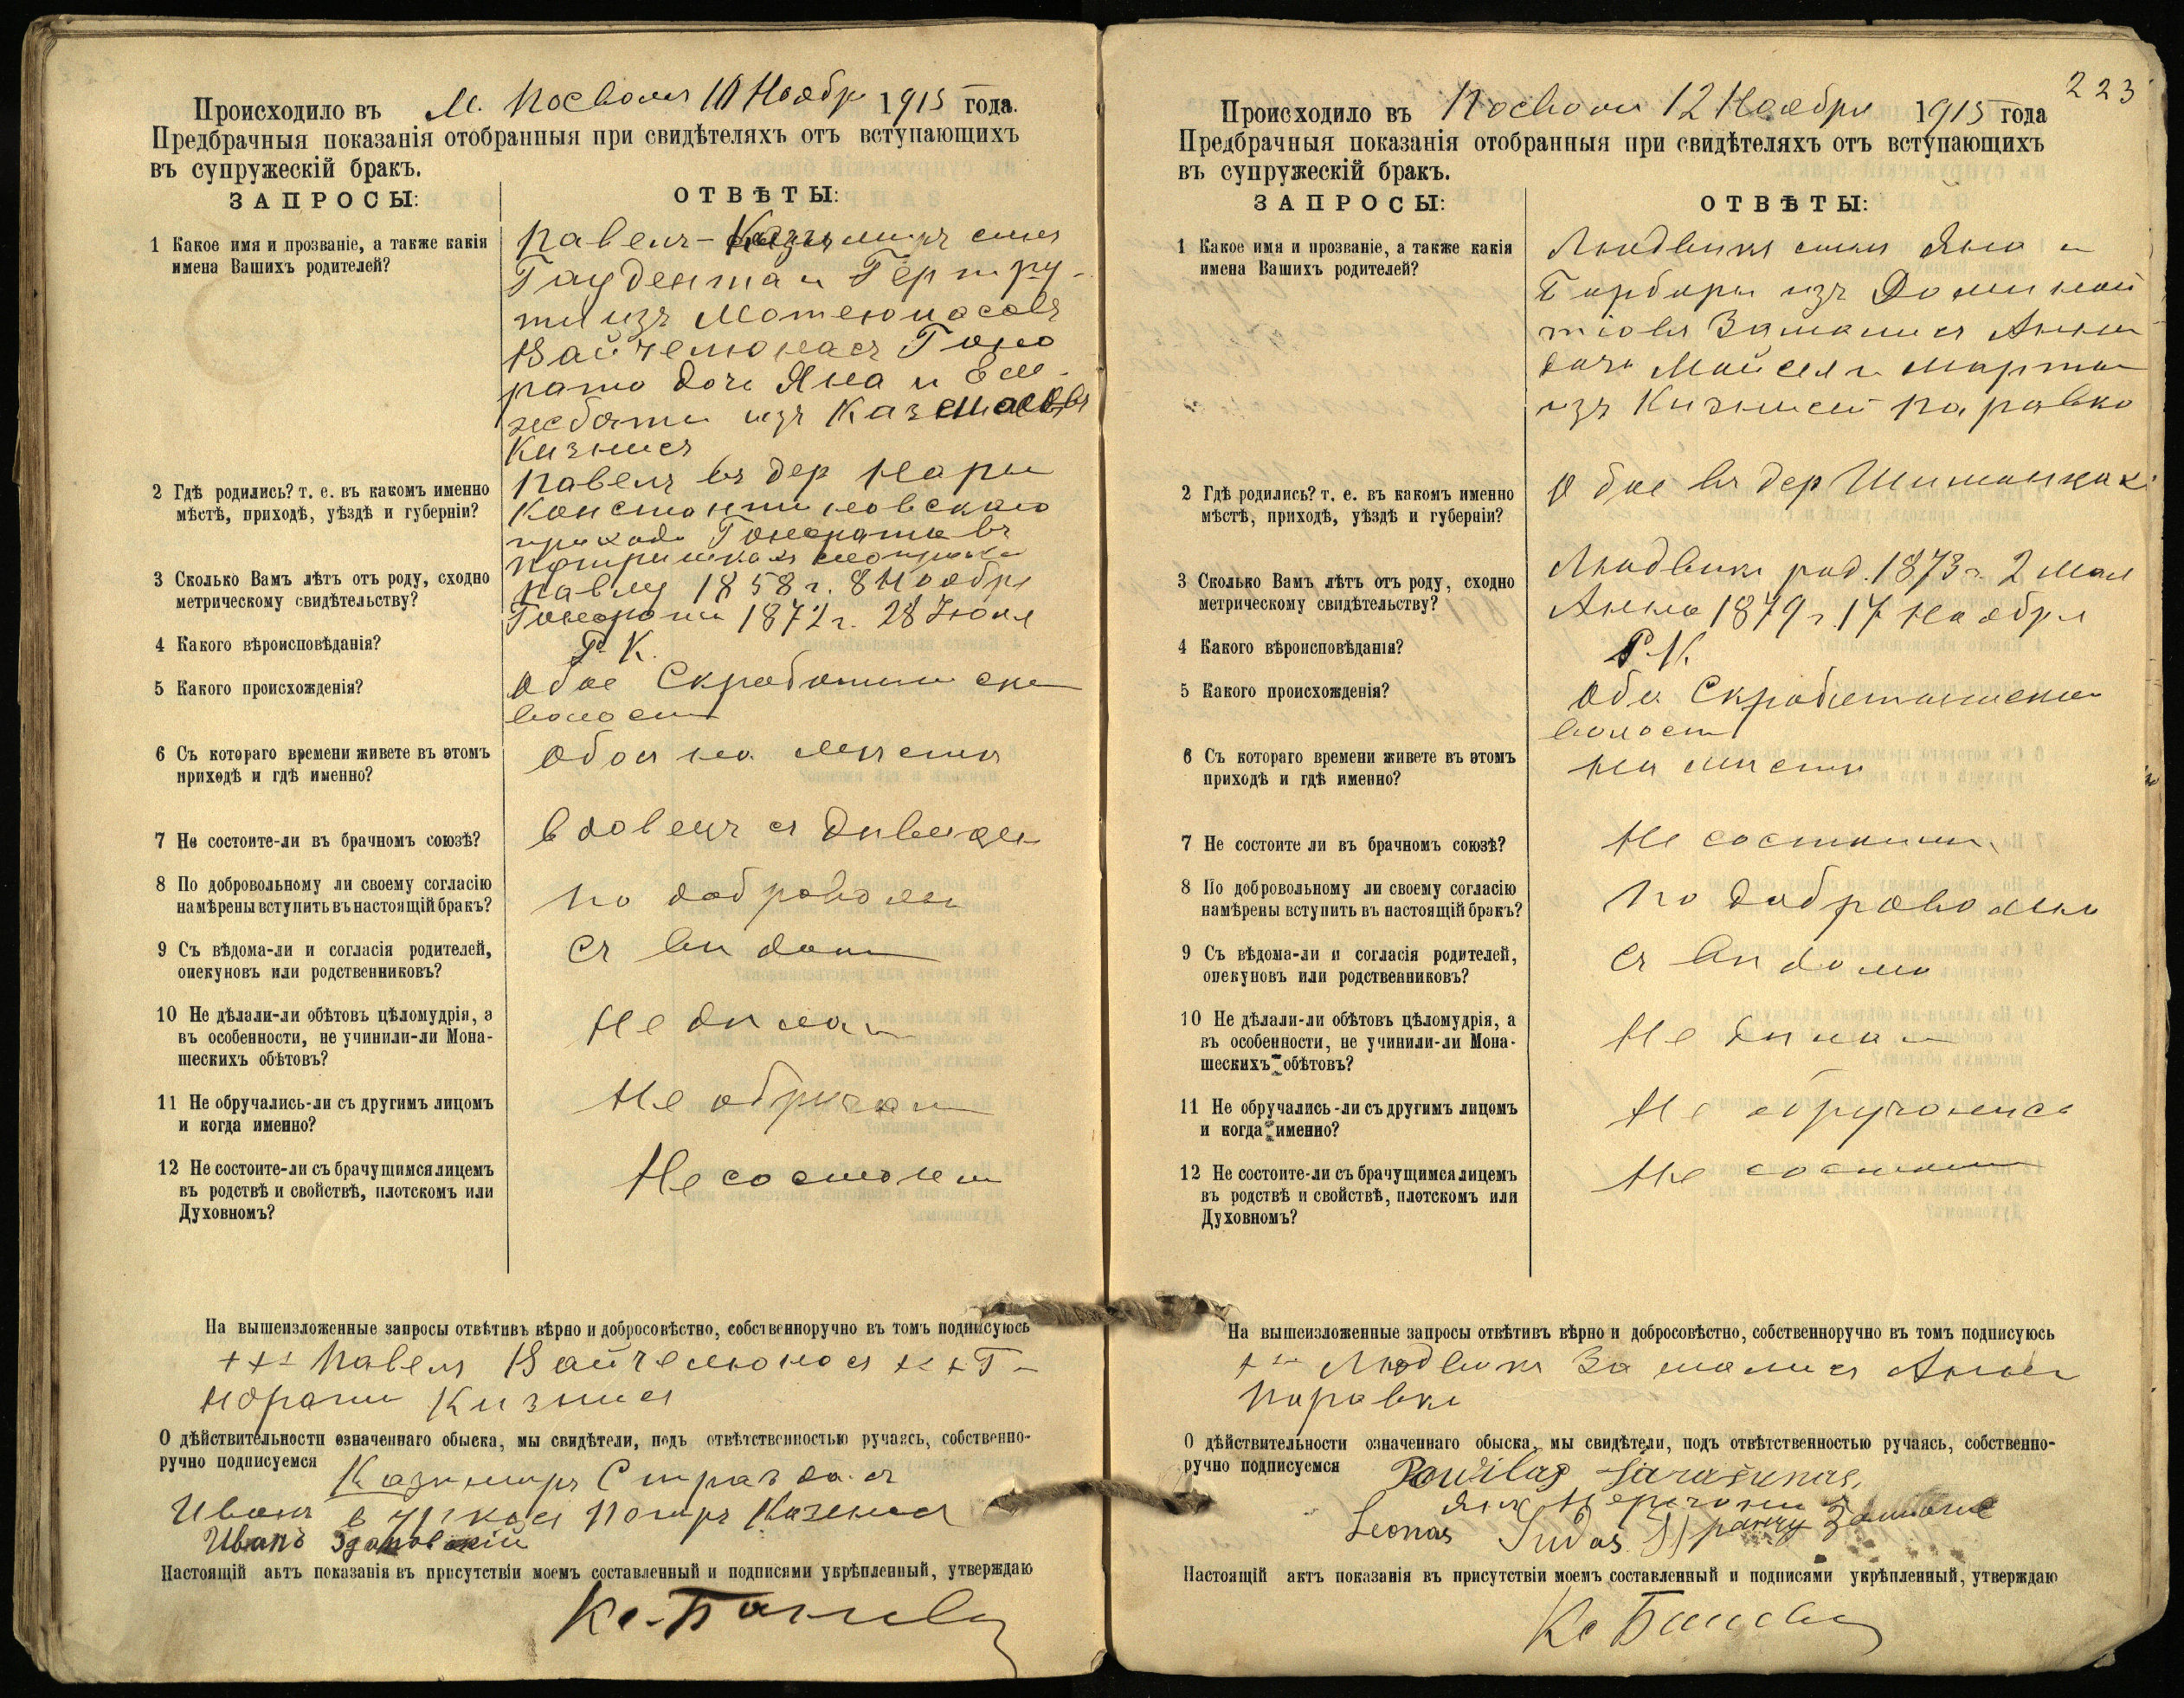 Происходило въ М. Посволя 10 Ноября 1915 года.
Предбрачныя показанія отобранныя при свидѣтеляхъ отъ вступающихъ
въ супружескій бракъ.
ЗАПРОСЫ:
ОТВѢТЫ:
1 Какое имя и прозваніе, а также какія
имена Вашихъ родителей?
Павелъ-Казимиръ сынъ
Гаудента и Гертру-
ты изъ
Вайчелюнасъ Гоно
рата дочь Яна и Ель-
жбеты изъ
Кизнисъ
2 Гдѣ родились? т. е. въ какомъ именно
мѣстѣ, приходѣ, уѣздѣ и губерніи?
Павелъ въ дер
Константиновскаго
прихода Гонората въ
3 Сколько Вамъ лѣтъ отъ роду, сходно
метрическому свидѣтельству?
Павлу 1858 г. 8 Ноября
Гонораты 1872 г. 28 Іюля
4 Какого вѣроисповѣданія?
Р. К.
5 Какого происхожденія?
Обое
волости
6 Съ котораго времени живете въ этомъ
приходѣ и гдѣ именно?
Обоя на мѣстѣ
7 Не состоите-ли въ брачномъ союзѣ?
вдовецъ съ дѣвицей
8 По добровольному ли своему согласію
намѣрены вступить въ настоящій бракъ?
по доброволь
9 Съ вѣдома-ли и согласія родителей,
опекуновъ или родственниковъ?
съ вѣдома
10 Не дѣлали-ли обѣтовъ цѣломудрія, а
въ особенности, не учинили-ли Мона-
шескихъ обѣтовъ?
Не дѣлали
11 Не обручались-ли съ другимъ лицомъ
и когда именно?
Не обручали
12 Не состоите-ли съ брачущимся лицемъ
въ родствѣ и свойствѣ, плотскомъ или
Духовномъ?
Не состоятъ
На вышеизложенные запросы отвѣтивъ вѣрно и добросовѣстно, собственноручно въ томъ подписуюсь
+++ Павелъ Вайчелюнасъ +++ Го-
нората Кизнисъ
О дѣйствительности означеннаго обыска, мы свидѣтели, подъ отвѣтственностью ручаясь, собственно-
ручно подписуемся Казимиръ Страздасъ
Иванъ Петръ
Иванъ
Настоящій актъ показанія въ присутствіи моемъ составленный и подписями укрѣпленный, утверждаю
223
Происходило въ Посволи 12 Ноября 1915 года
Предбрачныя показанія отобранныя при свидѣтеляхъ отъ вступающихъ
въ супружескій бракъ.
ЗАПРОСЫ:
ОТВѢТЫ:
1 Какое имя и прозваніе, а также какія
имена Вашихъ родителей?
Людвикъ сынъ Яна и
Барбары изъ
Анна
дочь и Марты
изъ
2 Гдѣ родились? т. е. въ какомъ именно
мѣстѣ, приходѣ, уѣздѣ и губерніи?
Обое въ дер
3 Сколько Вамъ лѣтъ отъ роду, сходно
метрическому свидѣтельству?
Людвикъ род. 1873 г. 2 Мая
Анна 1879 г. 17 Ноября
4 Какого вѣроисповѣданія?
Р. К.
5 Какого происхожденія?
Обое
волости
6 Съ котораго времени живете въ этомъ
приходѣ и гдѣ именно?
на мѣстѣ
7 Не состоите ли въ брачномъ союзѣ?
Не состояли
8 По добровольному ли своему согласію
намѣрены вступить въ настоящій бракъ?
По добровольно
9 Съ вѣдома-ли и согласія родителей,
опекуновъ или родственниковъ?
съ вѣдома
10 Не дѣлали-ли обѣтовъ цѣломудрія, а
въ особенности, не учинили-ли Мона-
шескихъ обѣтовъ?
Не дѣлали
11 Не обручались-ли съ другимъ лицомъ
и когда именно?
Не обручались
12 Не состоите-ли съ брачущимся лицемъ
въ родствѣ и свойствѣ, плотскомъ или
Духовномъ?
Не состоятъ
На вышеизложенные запросы отвѣтивъ вѣрно и добросовѣстно, собственноручно въ томъ подписуюсь
Людвикъ Анна
О дѣйствительности означеннаго обыска, мы свидѣтели, подъ отвѣтственностью ручаясь, собственно-
ручно подписуемся Powilas
Leonas
Настоящій актъ показанія въ присутствіи моемъ составленный и подписями укрѣпленный, утверждаю